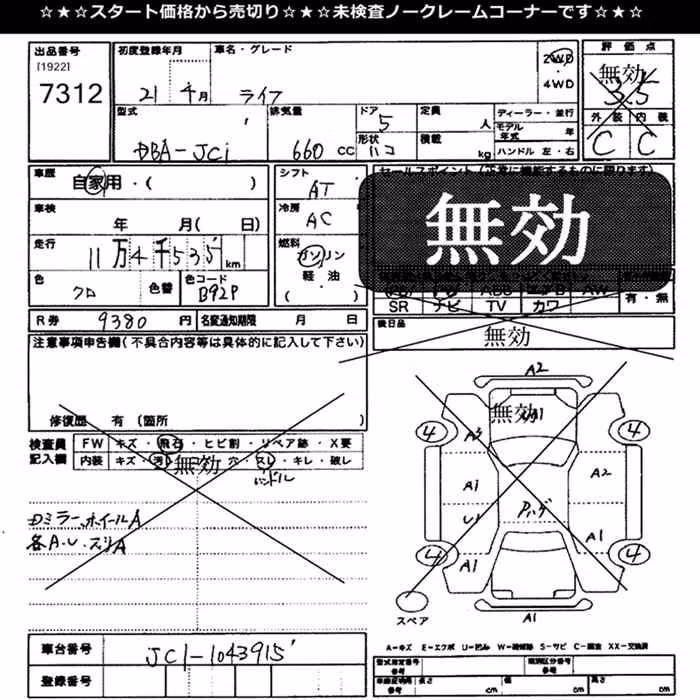 ☆★☆★スタート価格から売切り☆★☆★未検査ノークレームコーナーです☆★☆
出品番号
[1922]
7312
初度登録年月
21 年 月
車名・グレード
ライフ
2WD
・
4WD
評価点
無効
3.5
外装 内装
C C
型式
DBA-JC1
排気量
660 CC
ドア
5
形状
ハコ
定員
人
積載
kg
ディーラー・並行
モデル年式 年
ハンドル 左・右
車歴
自家用・( )
車検
年 月( 日)
走行
11万4千535km
色
クロ
色替
色コード
B92P
シフト
AT
冷房
AC
燃料
ガソリン
軽・油
( )
セールスポイント(正常に機能するものに限ります)
無効
SR ナビ TV カワ
有・無
後日品
無効
R券 9380 円
名変通知期限 月 日
注意事項申告欄(不具合内容等は具体的に記入して下さい)
修復歴 有 (箇所 )
検査員
記入欄
FW キズ・飛石・ヒビ割・リペア跡・X要
内装 キズ・汚・無効・穴・スレ・キレ・破レ
ハンドル
ホイールA
各A.U.
A2
無効
A3
4
4
A1
A2
U1
A1
A1
4
4
スペア
A1
A-キズ E-エクボ U-凹み
車台番号
JC1-1043915
登録番号
型式指定番号
参考
類別区分番号
参考
長さ cm
幅 cm
高さ cm